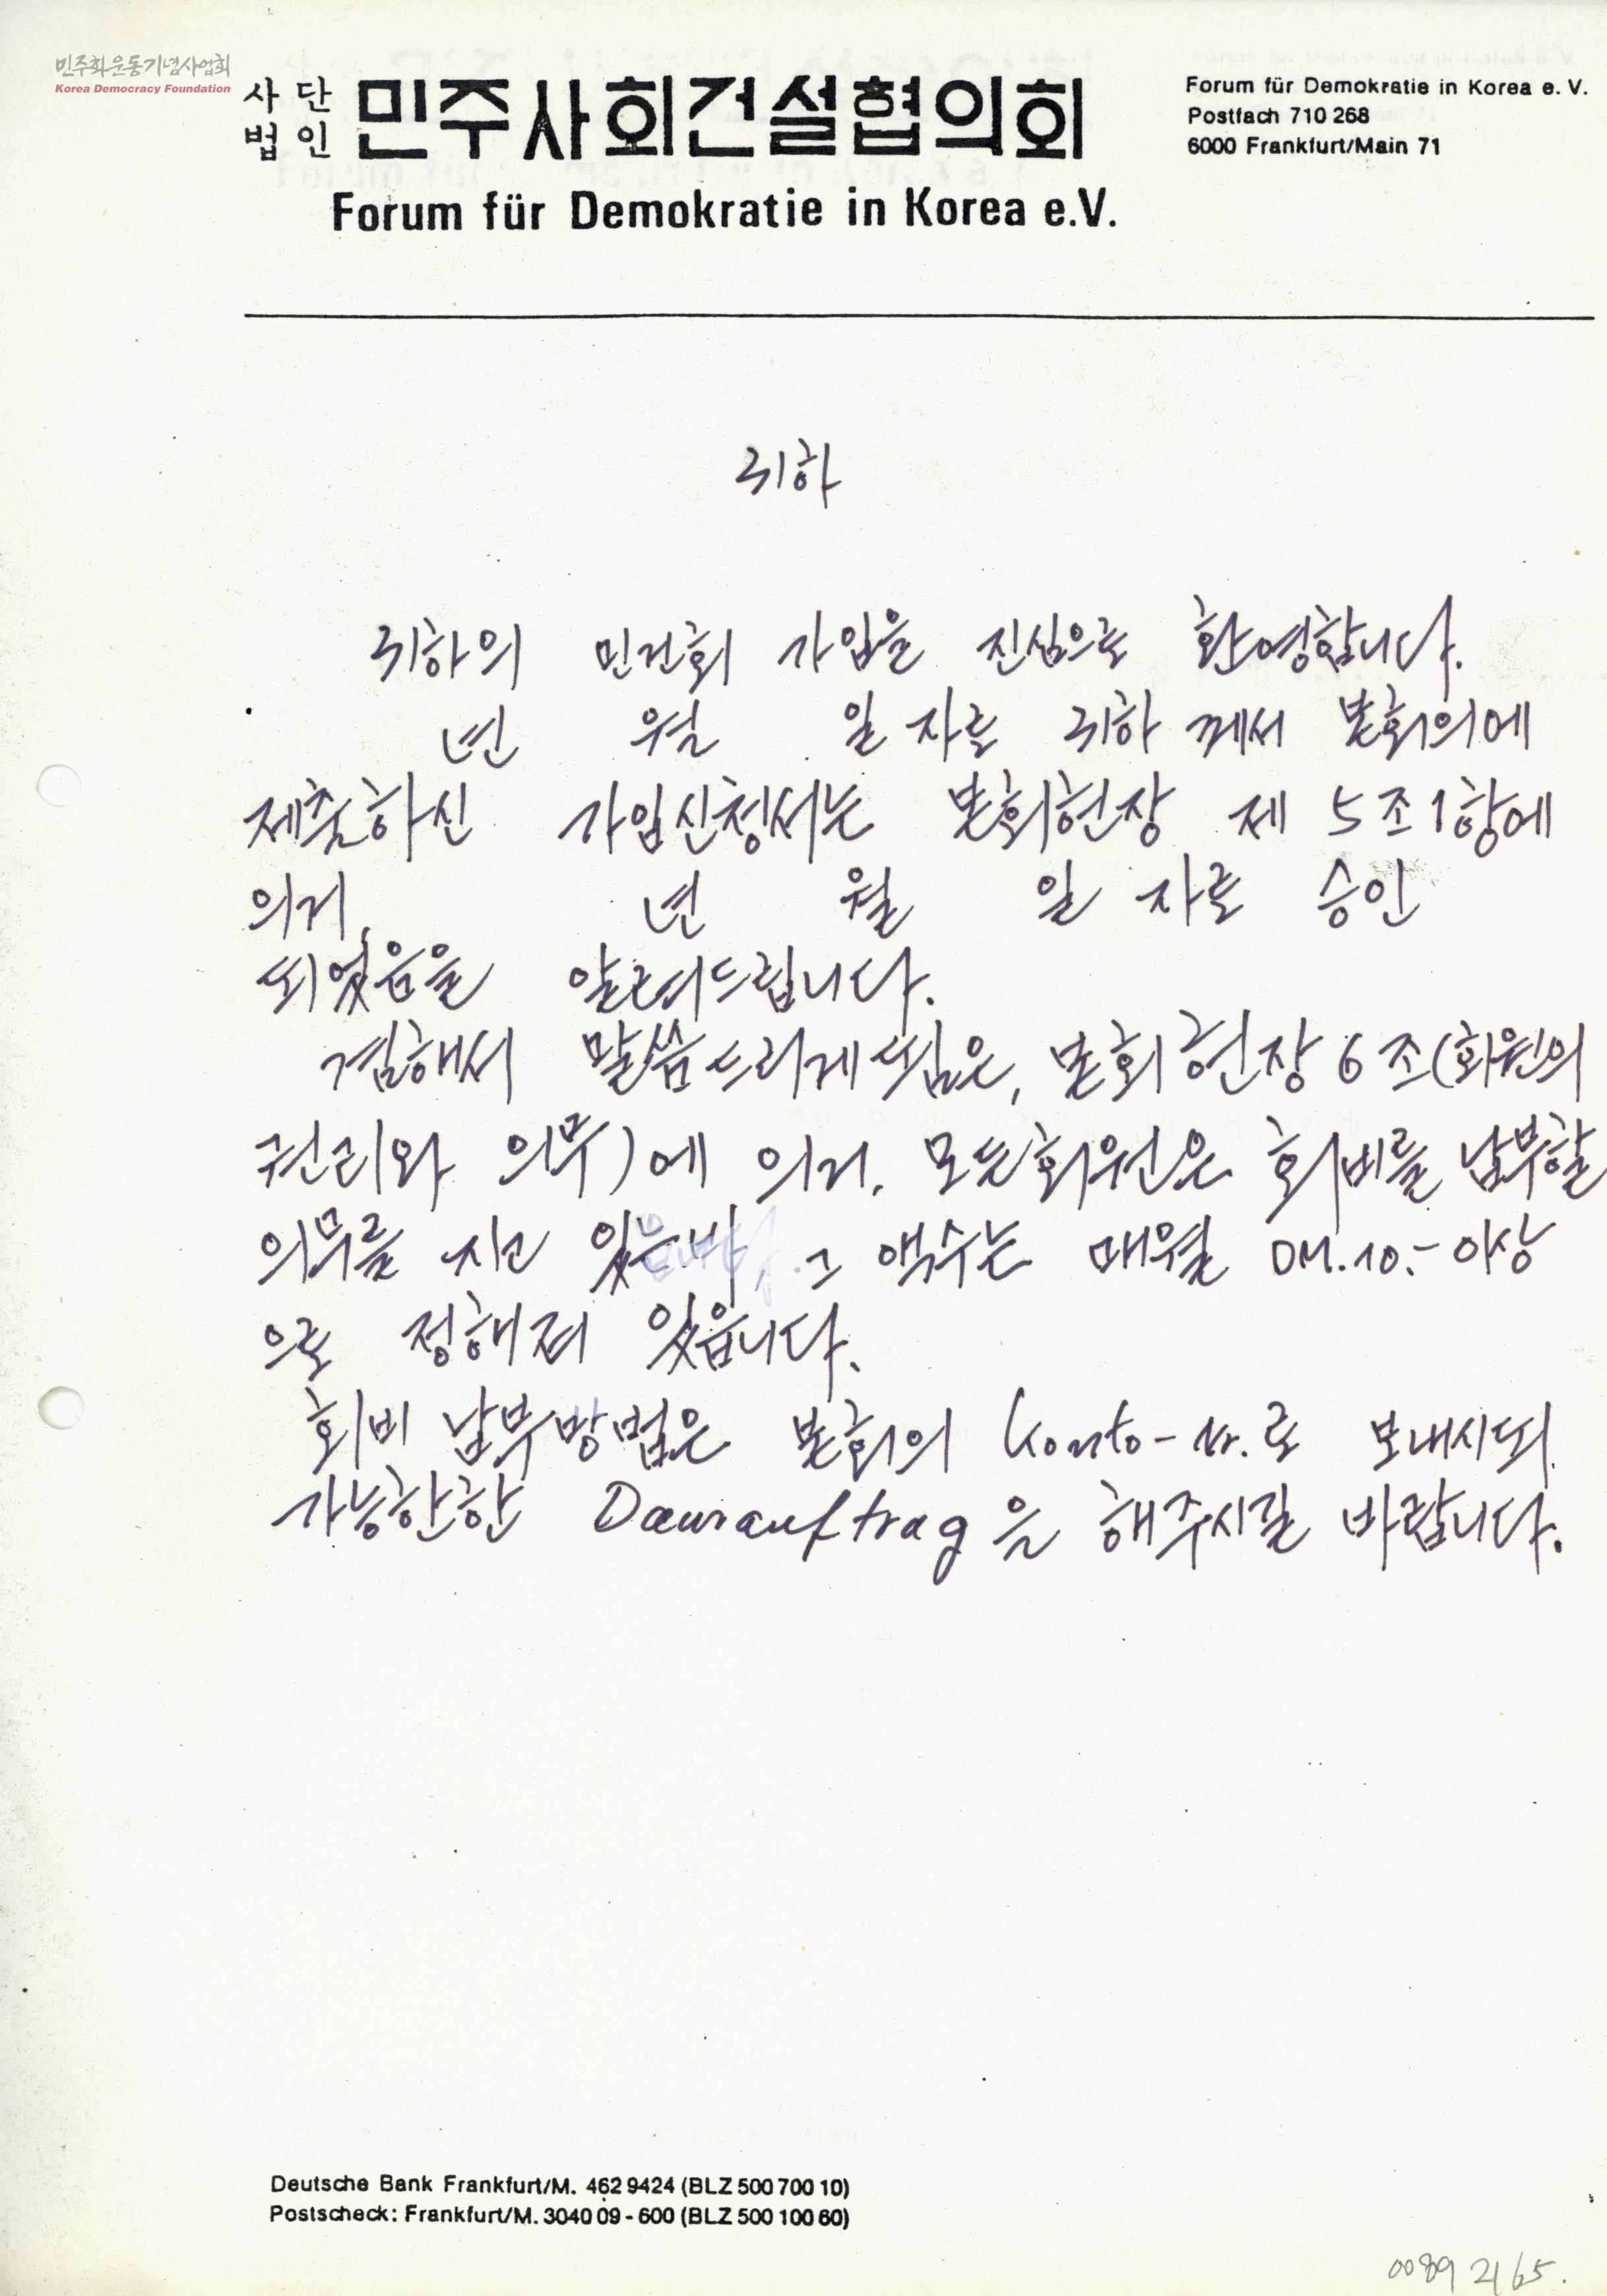 민주화운동기념사업회
Korea Democracy Foundation
사단
법인 민주사회건설협의회
Forum für Demokratie in Korea e.V.
Forum für Demokratie in Korea e. V.
Postfach 710 268
6000 Frankfurt/Main 71
귀하
귀하의 민건회 가입을 진심으로 환영합니다.
년 월 일 자로 귀하 께서 본회의에
제출하신 가입신청서는 본회헌장 제 5조1항에
의거, 년 월 일 자로 승인
되었음을 알려드립니다.
겸해서 말씀드리게 됨은, 본회헌장 6조(회원의
권리와 의무)에 의거, 모든회원은 회비를 납부할
의무를 지고 있는바, 그 액수는 매월 DM.10.- 이상
으로 정해져 있읍니다.
회비 납부방법은 본회의 Konto-Nr.로 보내시되
가능한한 Dauerauftrag을 해주시길 바랍니다.
Deutsche Bank Frankfurt/M. 462 9424 (BLZ 500 700 10)
Postscheck: Frankfurt/M. 3040 09 - 600 (BLZ 500 100 60)
0089 2165.